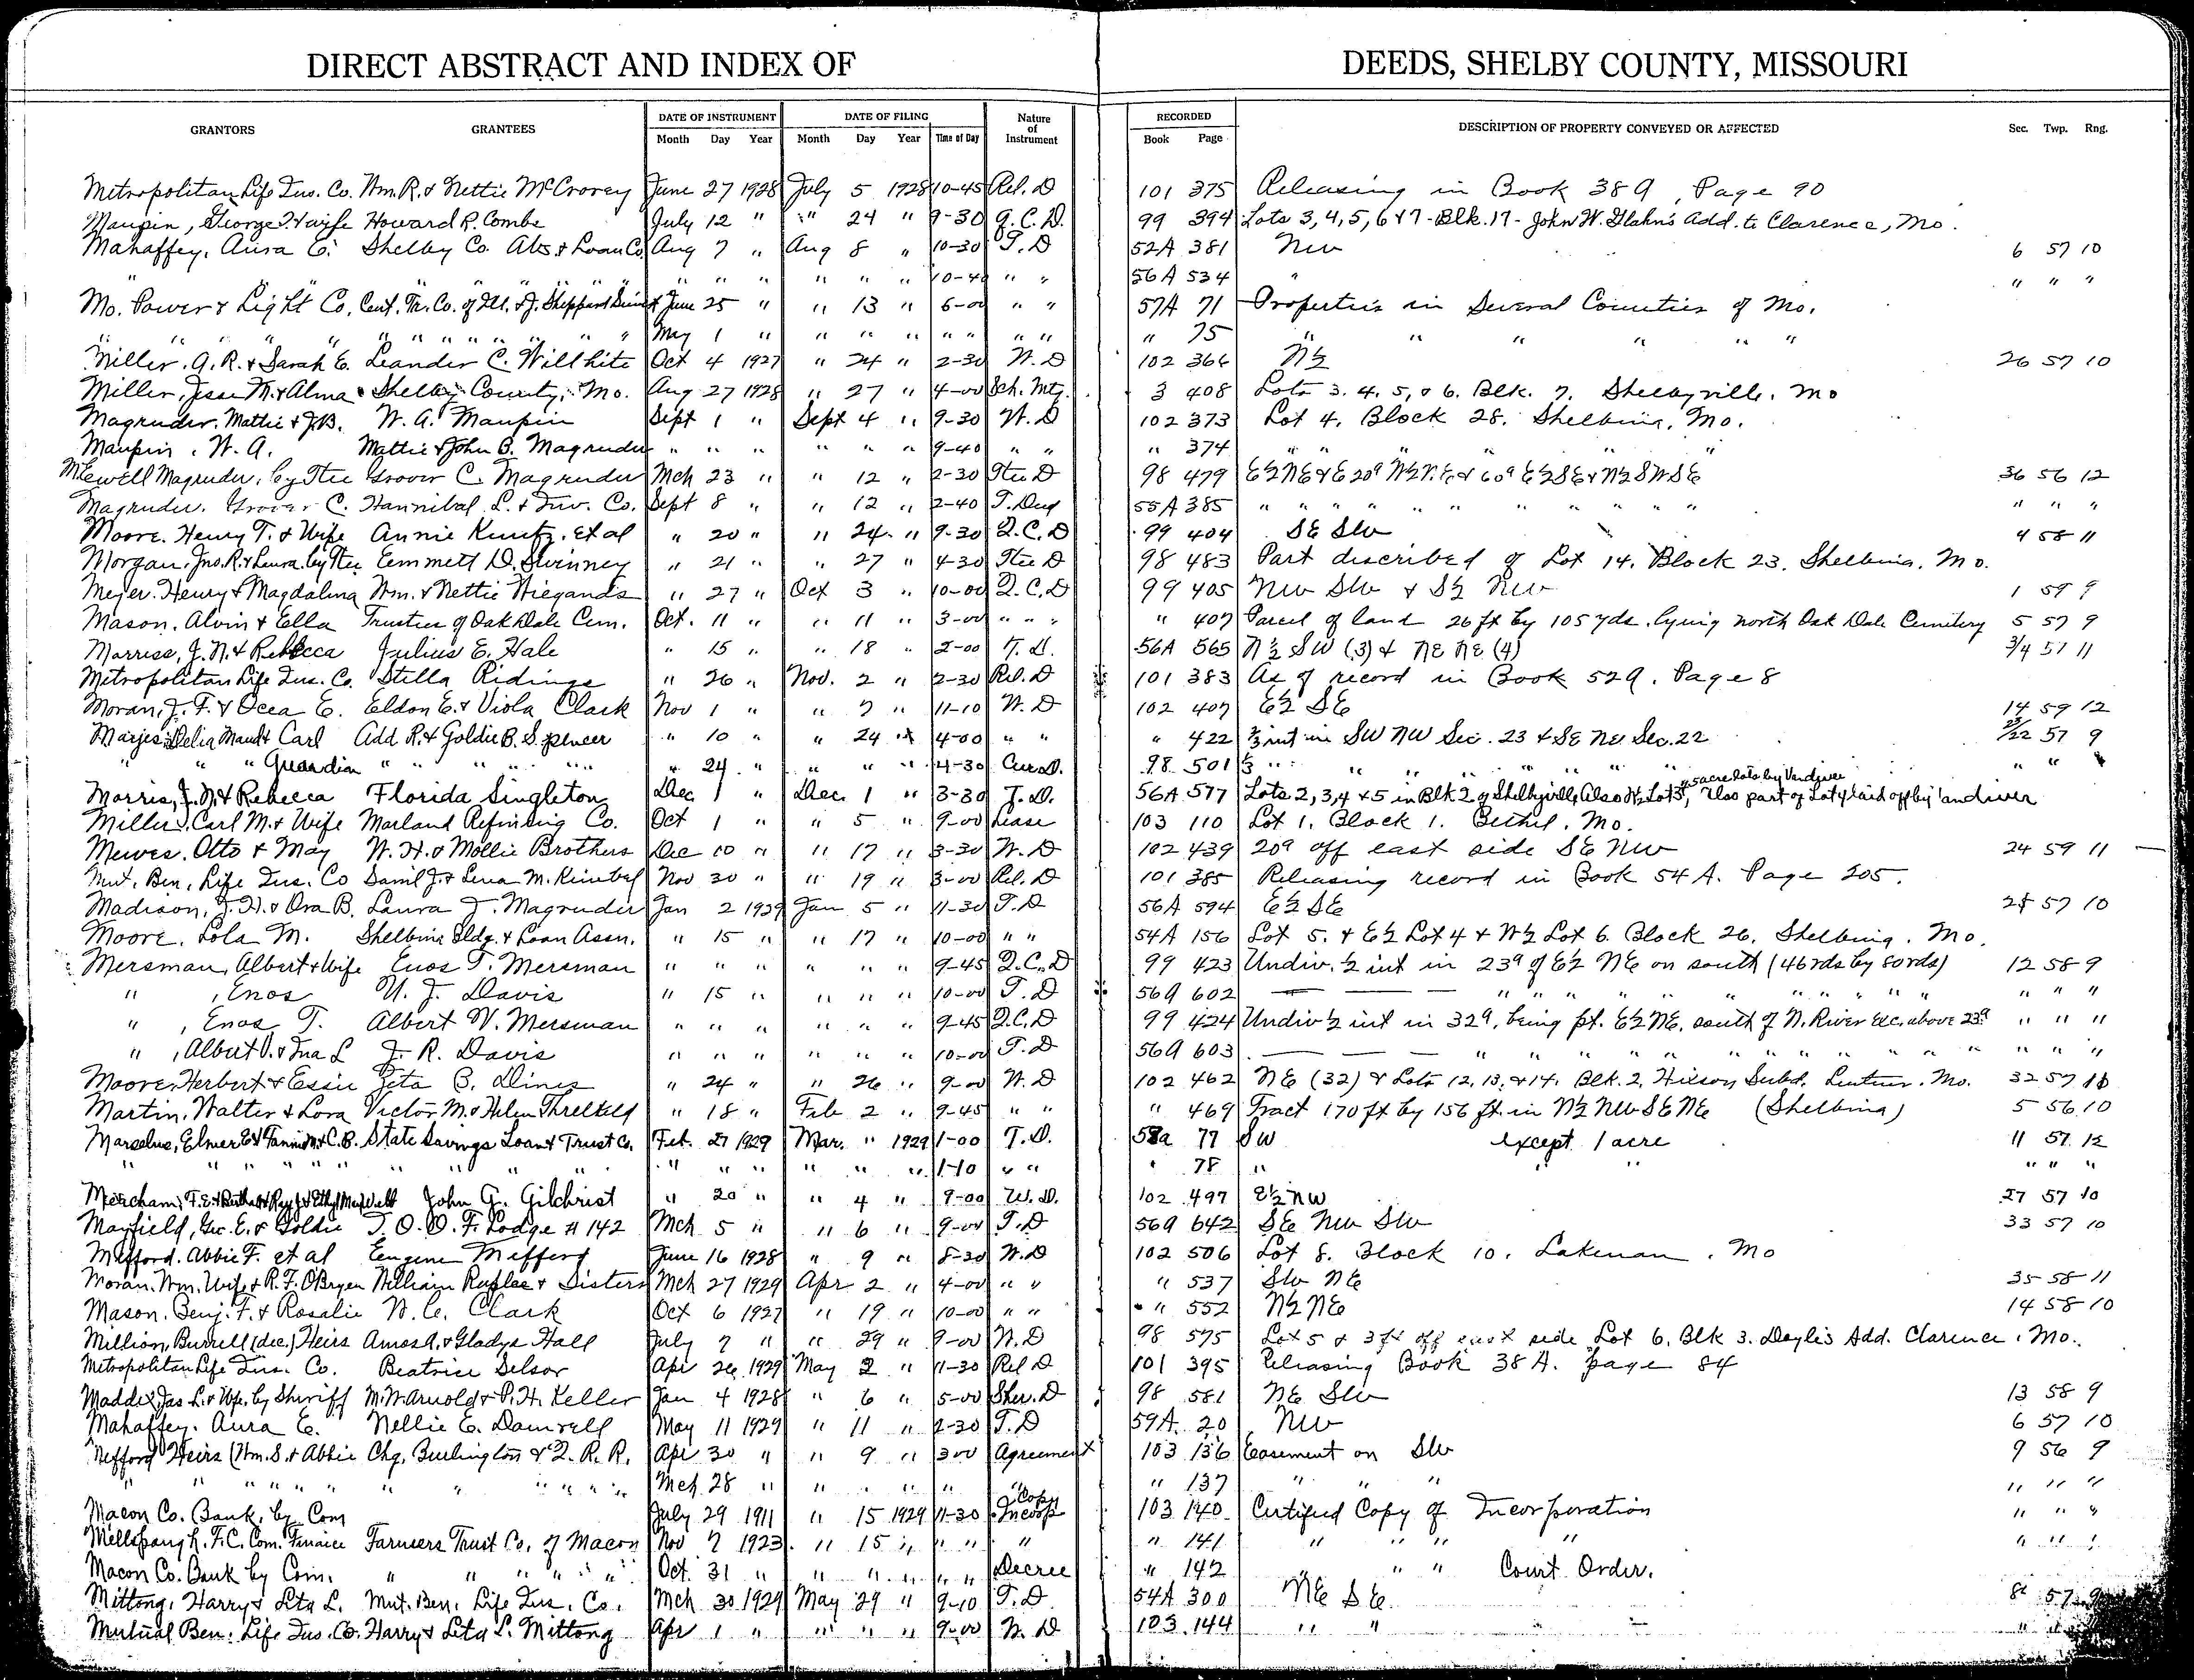 DIRECT ABSTRACT AND INDEX OF DEEDS, SHELBY COUNTY, MISSOURI
GRANTORS GRANTEES DATE OF INSTRUMENT Month Day Year DATE OF FILING Month Day Year Time of Day Nature of Instrument RECORDED Book Page DESCRIPTION OF PROPERTY CONVEYED OR AFFECTED Sec. Twp. Rng.
Metropolitan Life Ins. Co. Wm. R. & Nettie McCrovey June 27 1928 July 5 1928 10-45 Rel. D 101 375 Releasing in Book 38A, Page 90
Maupin, George & wife Howard R. Combe July 12 " " 24 " 9-30 Q.C.D. 99 394 Lots 3, 4, 5, 6 & 7 - Blk. 17 - John W. Glahn's Add. to Clarence, Mo.
Mahaffey, Aura E. Shelby Co. Abs. & Loan Co. Aug 7 " Aug 8 " 10-30 T.D 52A 381 NW 6 57 10
" " " " " " " " " " 10-40 " " 56A 534 " " " "
Mo. Power & Light Co. Cent. Tr. Co. of Ill. & J. Sheppard June 25 " " 13 " 6-00 " " 57A 71 Properties in Several Counties of Mo.
" " " " " " " " May 1 " " " " " " " " " 75 " " " " "
Miller, A. R. & Sarah E. Leander C. Willhite Oct 4 1927 " 24 " 2-30 W.D 102 366 N½ 26 57 10
Miller, Jesse M. & Alma Shelby County, Mo. Aug 27 1928 " 27 " 4-00 Sch. Mtg. 3 408 Lots 3. 4. 5, & 6. Blk. 7. Shelbyville. Mo
Magruder, Mattie & J.B. W. A. Maupin Sept 1 " Sept 4 " 9-30 W.D 102 373 Lot 4. Block 28. Shelbina, Mo.
Maupin, W. A. Mattie & John B. Magruder " " " " " " 9-40 " " " 374 " " " "
Magruder, by Ttee Grover C. Magruder Mch 23 " " 12 " 2-30 Ttee D 98 479 E½ NE & E 20a W½ NE & 60a E½ SE & N½ SW SE 36 56 12
Magruder, Grover C. Hannibal L. & Inv. Co. Sept 8 " " 12 " 2-40 T. Deed 55A 385 " " " " " " " " " " " "
Moore, Henry T. & Wife Annie Kuntz, et al " 20 " " 24 " 9-30 Q.C.D 99 404 SE SW 4 58 11
Morgan, Jno. R. & Laura by Ttee Emmett D. Swinney " 21 " " 27 " 4-30 Ttee D 98 483 Part described of Lot 14. Block 23. Shelbina. Mo.
Meyer, Henry & Magdalina Wm. & Nettie Wiegands " 27 " Oct 3 " 10-00 Q.C.D 99 405 NW SW & S½ NW 1 59 9
Mason, Alvin & Ella Trustees of Oak Dale Cem. Oct. 11 " " 11 " 3-00 " " " " 407 Parcel of land 26 ft by 105 yds. lying north Oak Dale Cemetery 5 57 9
Morriss, J. N. & Rebecca Julius E. Hale " 15 " " 18 " 2-00 T.D. 56A 565 N½ SW (3) & NE NE (4) 3/4 57 11
Metropolitan Life Ins. Co. Stella Ridings " 26 " Nov. 2 " 2-30 Rel. D 101 383 As of record in Book 52A. Page 8
Moran, J. F. & Ocea E. Eldon E. & Viola Clark Nov 1 " " 7 " 11-10 W.D 102 407 E½ SE 14 59 12
Marjes, Delia Maud & Carl Add R. & Goldie B. Spencer " 10 " " 24 " 4-00 " " " 422 ⅔ int in SW NW Sec. 23 & SE NE Sec. 22 23/22 57 9
" " " Guardian " " " " 24 " " " " 4-30 Cur. D. 98 501 ⅓ " " " " " " " "
Morris, J. N. & Rebecca Florida Singleton Dec 1 " Dec. 1 " 3-30 T.D. 56A 577 Lots 2, 3, 4 & 5 in Blk 2 of Shelbyville, Also N½ Lot 3, Also part of Lot 4 laid off by Vandiver
Miller, Carl M. & Wife Marland Refining Co. Oct 1 " " 5 " 9-00 Lease 103 110 Lot 1. Block 1. Bethel. Mo.
Mewes, Otto & May W. H. & Mollie Brothers Dec 10 " " 17 " 3-30 W.D 102 439 20a off east side SE NW 24 59 11
Mut. Ben. Life Ins. Co Danil J. & Lena M. Kimbel Nov 30 " " 19 " 3-00 Rel. D 101 385 Releasing record in Book 54A. Page 205.
Madison, J. H. & Ora B. Laura J. Magruder Jan 2 1929 Jan 5 " 11-30 T.D 56A 594 E½ SE 25 57 10
Moore, Lola M. Shelbina Bldg. & Loan Assn. " 15 " " 17 " 10-00 " " 54A 156 Lot 5. & E½ Lot 4 & W½ Lot 6. Block 26. Shelbina. Mo.
Mersman, Albert & wife Enos T. Mersman " " " " " " 9-45 Q.C.D 99 423 Undiv. ½ int in 23a of E½ NE on south (46 rds by 80 rds) 12 58 9
" , Enos W. J. Davis " 15 " " " " 10-00 T.D 56A 602 " " " " " " " " " " "
" , Enos T. Albert V. Mersman " " " " " " 9-45 Q.C.D 99 424 Undiv ½ int in 32a, being pt. E½ NE. south of N. River exc. above 23a " " "
" , Albert V. & Ina L J. R. Davis " " " " " " 10-00 T.D 56A 603 " " " " " " " " " " "
Moore, Herbert & Essie Zeta B. Dines " 24 " " 26 " 9-00 W.D 102 462 NE (32) & Lots 12, 13, & 14. Blk. 2. Hixson Subd. Lentner. Mo. 32 57 10
Martin, Walter & Lora Victor M. & Helen Threlkeld " 18 " Feb 2 " 9-45 " " " 469 Tract 170 ft by 156 ft. in N½ NW SE NE (Shelbina) 5 56 10
Marselus, Elmer E & Fannie M. & C.B. State Savings Loan & Trust Co. Feb. 27 1929 Mar. " 1929 1-00 T.D. 58a 77 SW except 1 acre 11 57 12
" " " " " " " " " " " " " " 1-10 " " " 78 " " " " " "
Mercham, F. E. & Bertha & Ray J & Ethyl Maxwell John G. Gilchrist " 20 " " 4 " 9-00 W.D. 102 497 E½ NW 27 57 10
Mayfield, Geo. E. & Goldie I. O. O. F. Lodge # 142 Mch 5 " " 6 " 9-00 T.D 56A 642 SE NW SW 33 57 10
Mefford, Abbie F. et al Eugene Mefford June 16 1928 " 9 " 8-30 W.D 102 506 Lot 8. Block 10. Lakenan. Mo
Moran, Wm. Wife & R. F. O'Bryen William Ruplee & Sisters Mch 27 1929 Apr 2 " 4-00 " " " 537 SW NE 35 58 11
Mason, Benj. F. & Rosalie W. E. Clark Oct 6 1927 " 19 " 10-00 " " " 552 N½ NE 14 58 10
Million, Burrell (dec.) Heirs Amos A. & Gladys Hall July 7 " " 29 " 9-00 W.D 98 575 Lot 5 & 3 ft off east side Lot 6. Blk 3. Doyle's Add. Clarence. Mo.
Metropolitan Life Ins. Co. Beatrice Delsor Apr 26 1929 May 2 " 11-30 Rel D 101 395 Releasing Book 38A. page 84
Maddex, Jas L. & Wife. by Sheriff M. W. Arnold & P. H. Keller Jan 4 1928 " 6 " 5-00 Sher. D 98 581 NE SW 13 58 9
Mahaffey, Aura E. Nellie E. Damrell May 11 1929 " 11 " 2-30 T.D 59A 20 NW 6 57 10
Mefford Heirs (Wm. S. & Abbie Chg. Burlington & Q. R. R. Apr 30 " " 9 " 3 00 Agreement 103 136 Easement on SW 9 56 9
" " " " " " " " Mch 28 " " " " " " " 137 " " " " " "
Macon Co. Bank, by Com July 29 1911 " 15 1929 11-30 Copy Incorp 103 140 Certified Copy of Incorporation " " "
Mellspaugh. F.C. Com. Finance Farmers Trust Co. of Macon Nov 7 1923 " 15 " " " " " 141 " " " " " " "
Macon Co. Bank by Com. " " " " " Oct. 31 " " " " " " Decree " 142 " " " Court Order.
Mittong, Harry & Leta L. Mut. Ben. Life Ins. Co. Mch 30 1929 May 29 " 9-10 T.D 54A 300 NE SE 8 57 9
Mutual Ben. Life Ins. Co. Harry & Leta L. Mittong Apr 1 " " " " 9-00 W.D 103 144 " " " "